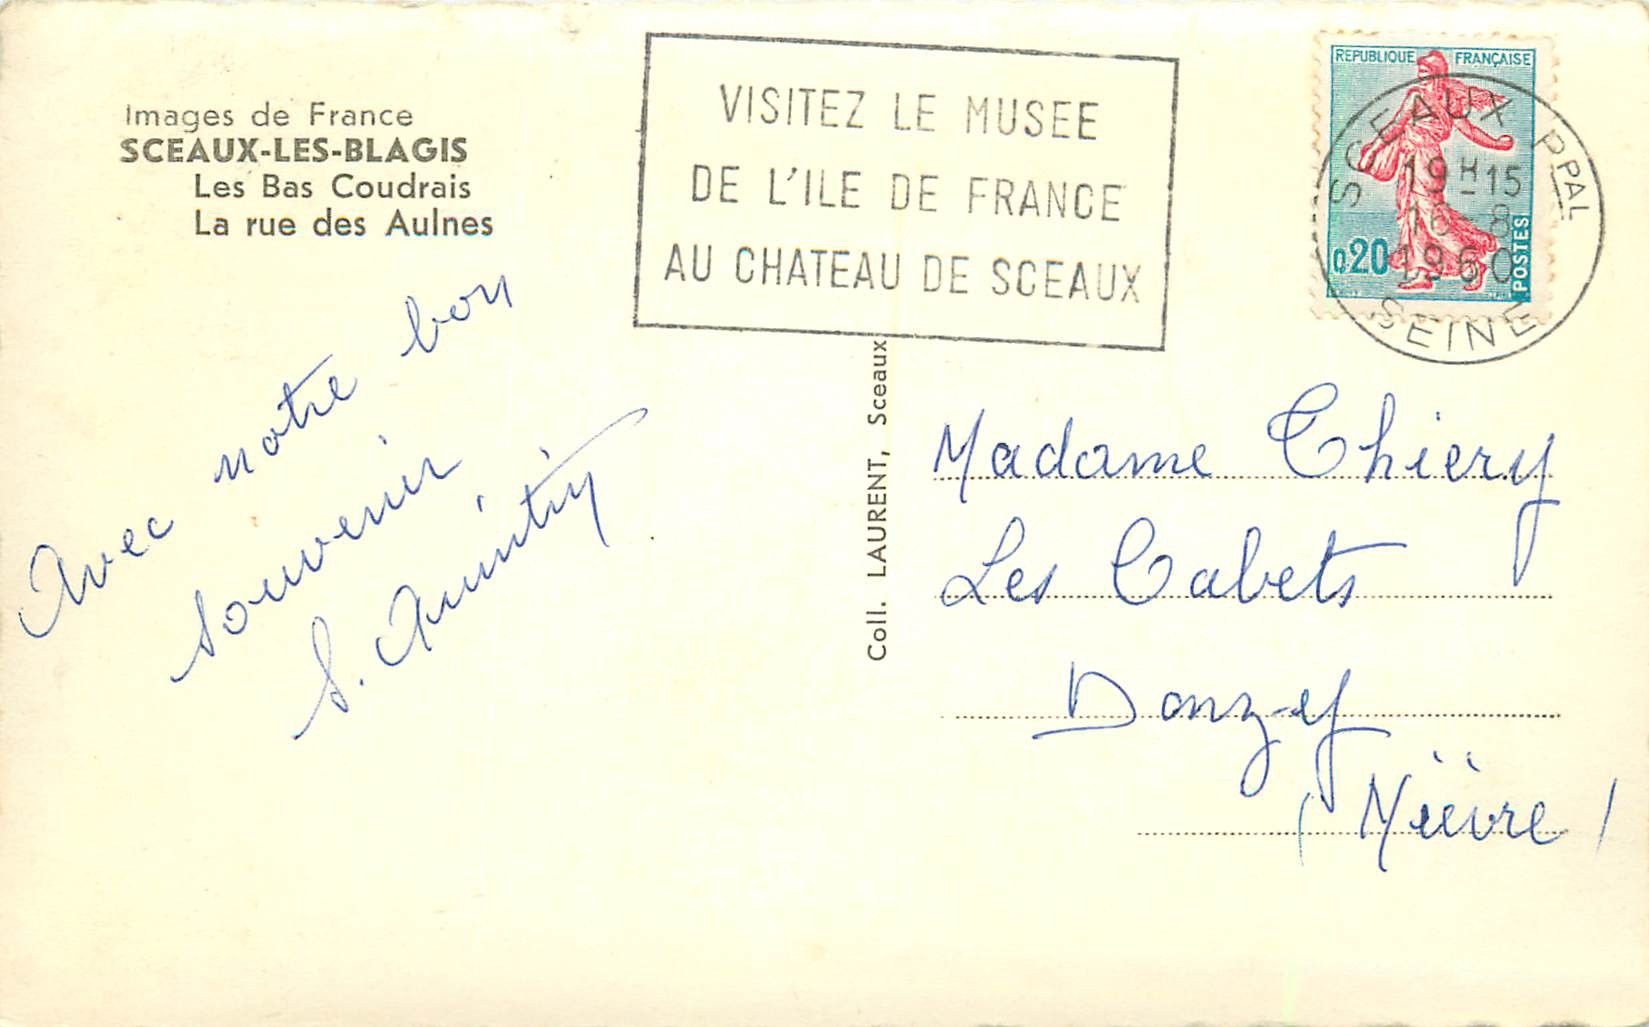 Images de France
SCEAUX-LES-BLAGIS
Les Bas Coudrais
La rue des Aulnes
VISITEZ LE MUSEE
DE L'ILE DE FRANCE
AU CHATEAU DE SCEAUX
REPUBLIQUE FRANÇAISE
0,20
POSTES
SCEAUX PPAL
19H15
16 - 8
1960
SEINE
Avec notre bon
souvenir
S.
Coll. LAURENT, Sceaux
Madame Thiery
Les Cabets
Donzy
(Nièvre)